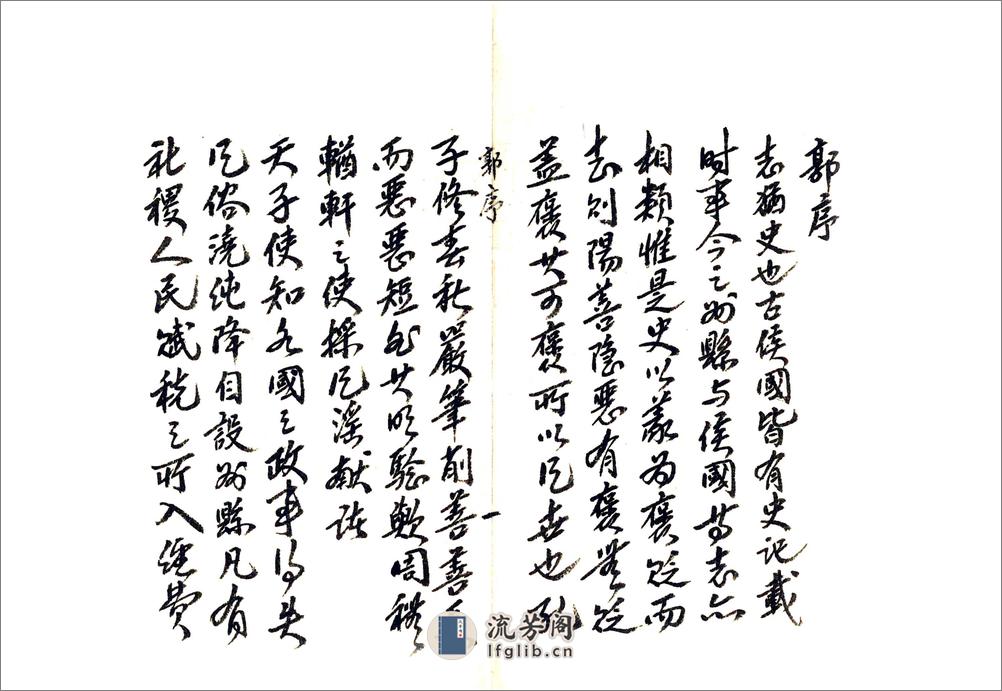 郭序
志猶史也古侯國皆有史記載
時事今之州縣與侯國等志亦
相類惟是史以義為褒貶而
志則陽善隱惡有褒無貶
蓋褒其可褒所以風世也孔
郭序
一
子修春秋嚴筆削善善長
而惡惡短此其明驗歟周禮
輶軒之使採風謠獻諸
天子使知各國之政事得失
風俗澆純降自設州縣凡有
社稷人民賦稅之所入經費
流芳阁
lfglib.cn